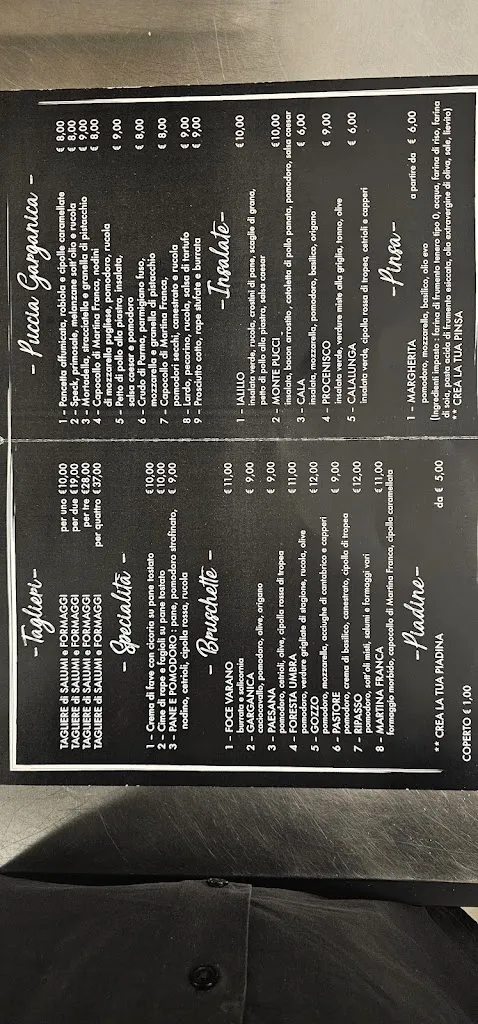 -Taglieri-
TAGLIERE di SALUMI e FORMAGGI per uno €10,00
TAGLIERE di SALUMI e FORMAGGI per due €19,00
TAGLIERE di SALUMI e FORMAGGI per tre €28,00
TAGLIERE di SALUMI e FORMAGGI per quattro €37,00
- Specialità -
1 - Crema di fave con cicoria su pane tostato €10,00
2 - Cime di rape e fagioli su pane tostato €10,00
3 - PANE E POMODORO : pane, pomodoro strofinato, € 9,00
nodino, cetrioli, cipolla rossa, rucola
- Bruschette -
1 - FOCE VARANO €11,00
burrata e salicornia
2 - GARGANICA € 9,00
caciocavallo, pomodoro, olive, origano
3 - PAESANA € 9,00
pomodoro, cetrioli, olive, cipolla rossa di tropea
4 - FORESTA UMBRA €11,00
pomodoro, verdure grigliate di stagione, rucola, olive
5 - GOZZO €12,00
pomodoro, mozzarella, acciughe di cantabrico e capperi
6 - PASTORE € 9,00
pomodoro, crema di basilico, canestrato, cipolla di tropea
7 - RIPASSO €12,00
pomodoro, sott'oli misti, salumi e formaggi vari
8 - MARTINA FRANCA €11,00
formaggio morbido, capocollo di Martina Franca, cipolla caramellata
-Piadine-
** CREA LA TUA PIADINA da € 5,00
COPERTO € 1,00
- Puccia Garganica -
1 - Pancetta affumicata, robiola e cipolle caramellate € 8,00
2 - Speck, emmosale, melanzane sott'olio e rucola € 8,00
3 - Mortadella, stracciatella e granella di pistacchio € 9,00
4 - Capocollo di Martina Franca, nodini € 8,00
di mozzarella pugliese, pomodoro, rucola
5 - Petto di pollo alla piastra, insalata, € 9,00
salsa caesar e pomodoro
6 - Crudo di Parma, parmigiano fuso, € 8,00
mozzarella e granella di pistacchio
7 - Capocollo di Martina Franca, € 8,00
pomodori secchi, canestrato e rucola
8 - Lardo, pecorino, rucola, salsa di tartufo € 9,00
9 - Prosciutto cotto, rape stufate e burrata € 9,00
-Insalate-
1 - JALILLO €10,00
insalata verde, rucola, crostini di pane, scaglie di grana,
petto di pollo alla piastra, salsa caesar
2 - MONTE PUCCI €10,00
insalata, bacon arrostito, cotoletta di pollo panata, pomodoro, salsa caesar
3 - CALA € 6,00
insalata, mozzarella, pomodoro, basilico, origano
4 - PROCENISCO € 9,00
insalata verde, verdure miste alla griglia, tonno, olive
5 - CALALUNGA € 6,00
insalata verde, cipolla rossa di tropea, cetrioli e capperi
-Pinsa-
1 - MARGHERITA a partire da € 6,00
pomodoro, mozzarella, basilico, olio evo
(Ingredienti impasto : farina di frumento tenero tipo 0, acqua, farina di riso, farina
di soia, pasta acida di frumento esiccata, olio extravergine di oliva, sale, lievito)
** CREA LA TUA PINSA